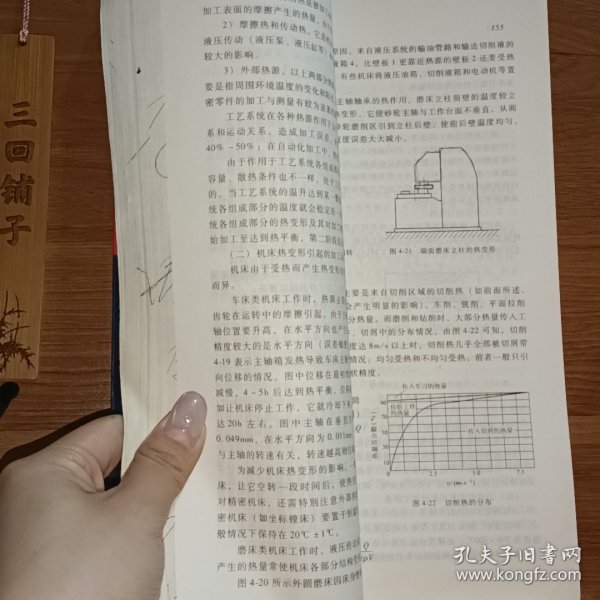 三回铺子
加工表面的摩擦产生的热量，
2）摩擦热和传动热。它
液压传动（液压泵、液压缸等）
较大的影响。
3）外部热源。以上两部分热
要是指周围环境温度的变化和
密零件的加工与测量有较为
工艺系统在各种热源作用下
系和运动关系，造成加工误差。
40%～50%；在自动化加工中，
由于作用于工艺系统各组成
容量、散热条件也不一样，处于
的。当工艺系统的温升达到某一
统各组成部分的温度就会稳定在一
统各组成部分的热变形及其对加
始加工至达到热平衡，第二阶段
（二）机床热变形引起的加工
机床由于受热而产生热变形
而异。
车床类机床工作时，热源主
齿轮在运转中的摩擦引起。由于
轴位置要升高，在水平方向也产
精度较大的是水平方向（误差敏
4-19表示主轴箱发热导致车床主
向位移的情况。图中位移在最初
减慢，4～5h后达到热平衡，位移
如让机床停止工作，它就冷却下
达20h左右。图中主轴在垂直
0.049mm，在水平方向为0.01
与主轴的转速有关，转速越高则
为减少机床热变形的影响，
床，让它空转一段时间后，使
对精密机床，还需特别注意外部
密机床（如坐标镗床）要置于恒温
般情况下保持在20℃±1℃。
磨床类机床工作时，液压传动
产生的热量常使机床各部分结构
图4-20所示外圆磨床因床身
155
原因，来自液压系统的输油管路和输送切削液的
液箱4，比壁板1更靠近热源的壁板2还要受热
有些机床将液压油箱、切削液箱和电动机等置
主轴轴承的热作用，磨床立柱前壁的温度较立
热变形。它使砂轮主轴与工作台面不垂直，从而
砂轮磨削区引到立柱后壁，使前后壁温度均匀，
直度误差大大减小。
图4-21 端面磨床立柱的热变形
主要是来自切削区域的切削热（如前面所述，
会产生明显的影响）。车削、铣削、平面拉削
分热量，而磨削和钻削时，大部分热量传入工
、切屑中的分布情况。由图4-22可知，切削
度达8m/s以上时，切削热几乎全部被切屑带
情况：均匀受热和不均匀受热。前者一般只引
状精度。
传入车刀的热量
传给工件
的热量
传入切屑的热量
热量百分数（%）
90
70
50
30
10
0
2.5
5.0
7.5
v/(m·s⁻¹)
图4-22 切削热的分布
Q
ρV
孔夫子旧书网
www.kongfz.com